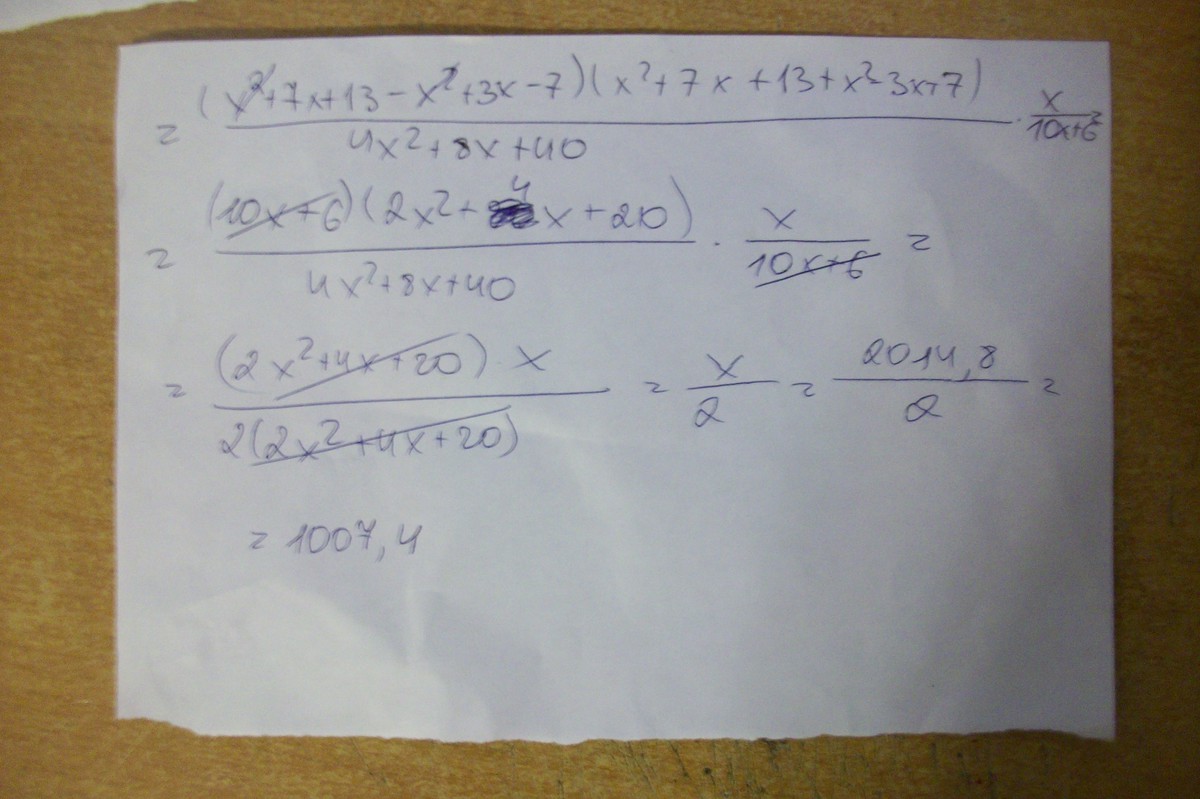 = (x²+7x+13-x²+3x-7)(x²+7x+13+x²-3x+7) / 4x²+8x+40 · x / 10x+6 =
= (10x+6)(2x²+4x+20) / 4x²+8x+40 · x / 10x+6 =
= (2x²+4x+20) x / 2(2x²+4x+20) = x / 2 = 2014,8 / 2 =
= 1007,4